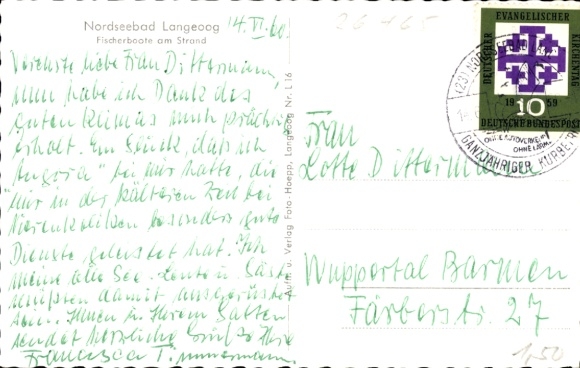 Nordseebad Langeoog
Fischerboote am Strand
14. VI. 60.
Verehrte liebe Frau Dittermann,
nun habe ich Dank des
guten Klimas mich prächtig
erholt. Ein Glück, daß ich
"Angoria" bei mir hatte, die
mir in der kälteren Zeit bei
Nierenkoliken besonders gute
Dienste geleistet hat. Ich
meine alle See-Leute u. Gäste
müßten damit ausgerüstet
sein. Ihnen u. Ihrem Gatten
sendet herzliche Grüße Ihre
Francesca Timmermann.
Aufn. u. Verlag Foto-Hoepp, Langeoog Nr. L 16
26-65
EVANGELISCHER
DEUTSCHER
KIRCHENTAG
1959
10
DEUTSCHE BUNDESPOST
(23) NORDSEEBAD
OHNE AUTOVERKEHR
OHNE LÄRM
GANZJÄHRIGER KURBETRIEB
Frau
Lotte Dittermann
Wuppertal Barmen
Färberstr. 27
1,50